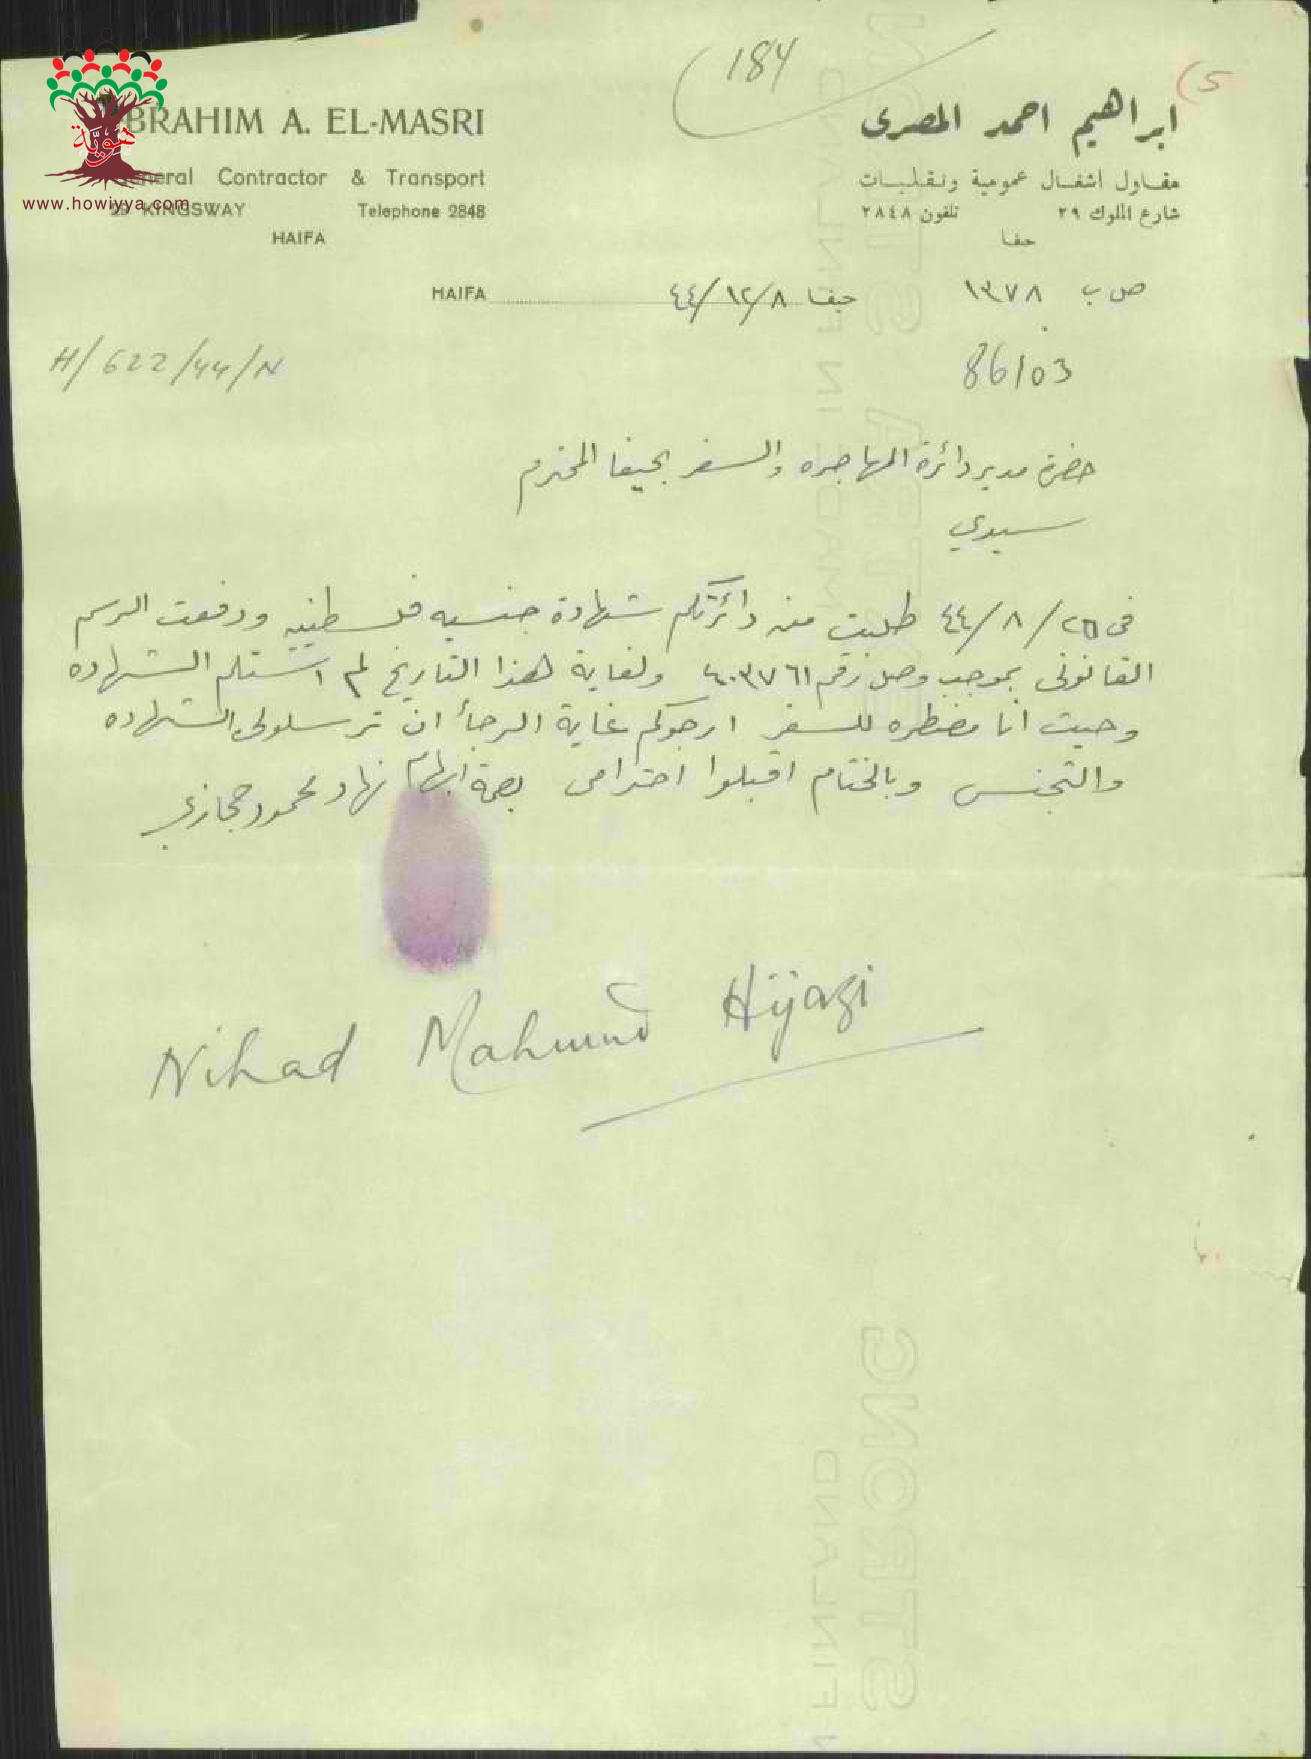 184
(5
IBRAHIM A. EL-MASRI
ابراهيم احمد المصرى
General Contractor & Transport
مقاول اشغال عمومية ونقليات
29 KINGSWAY Telephone 2848
شارع الملوك ٢٩ تلفون ٢٨٤٨
HAIFA
حيفا
هويّة
www.howiyya.com
ص ب ١٣٧٨
HAIFA حيفا ٤٤/١٢/٨
H/622/44/N
86103
حضرة مدير دائرة المهاجره والسفر بحيفا المحترم
سيدي
فى ٤٤/٨/٢٦ طلبت من دائرتكم شهادة جنسيه فلسطينيه ودفعت الرسم
القانونى بموجب وصل رقم ٤٠٣٧٦١ ولغاية هذا التاريخ لم استلم الشهاده
وحيث انا مضطره للسفر ارجوكم غاية الرجأ ان ترسلولى الشهاده
والتجنس وبالختام اقبلوا احترامى بصمة ابهام نهاد محمود حجازي
Nihad Mahmud Hijazi
STRONG
FINLAND
MADE IN FINLAND